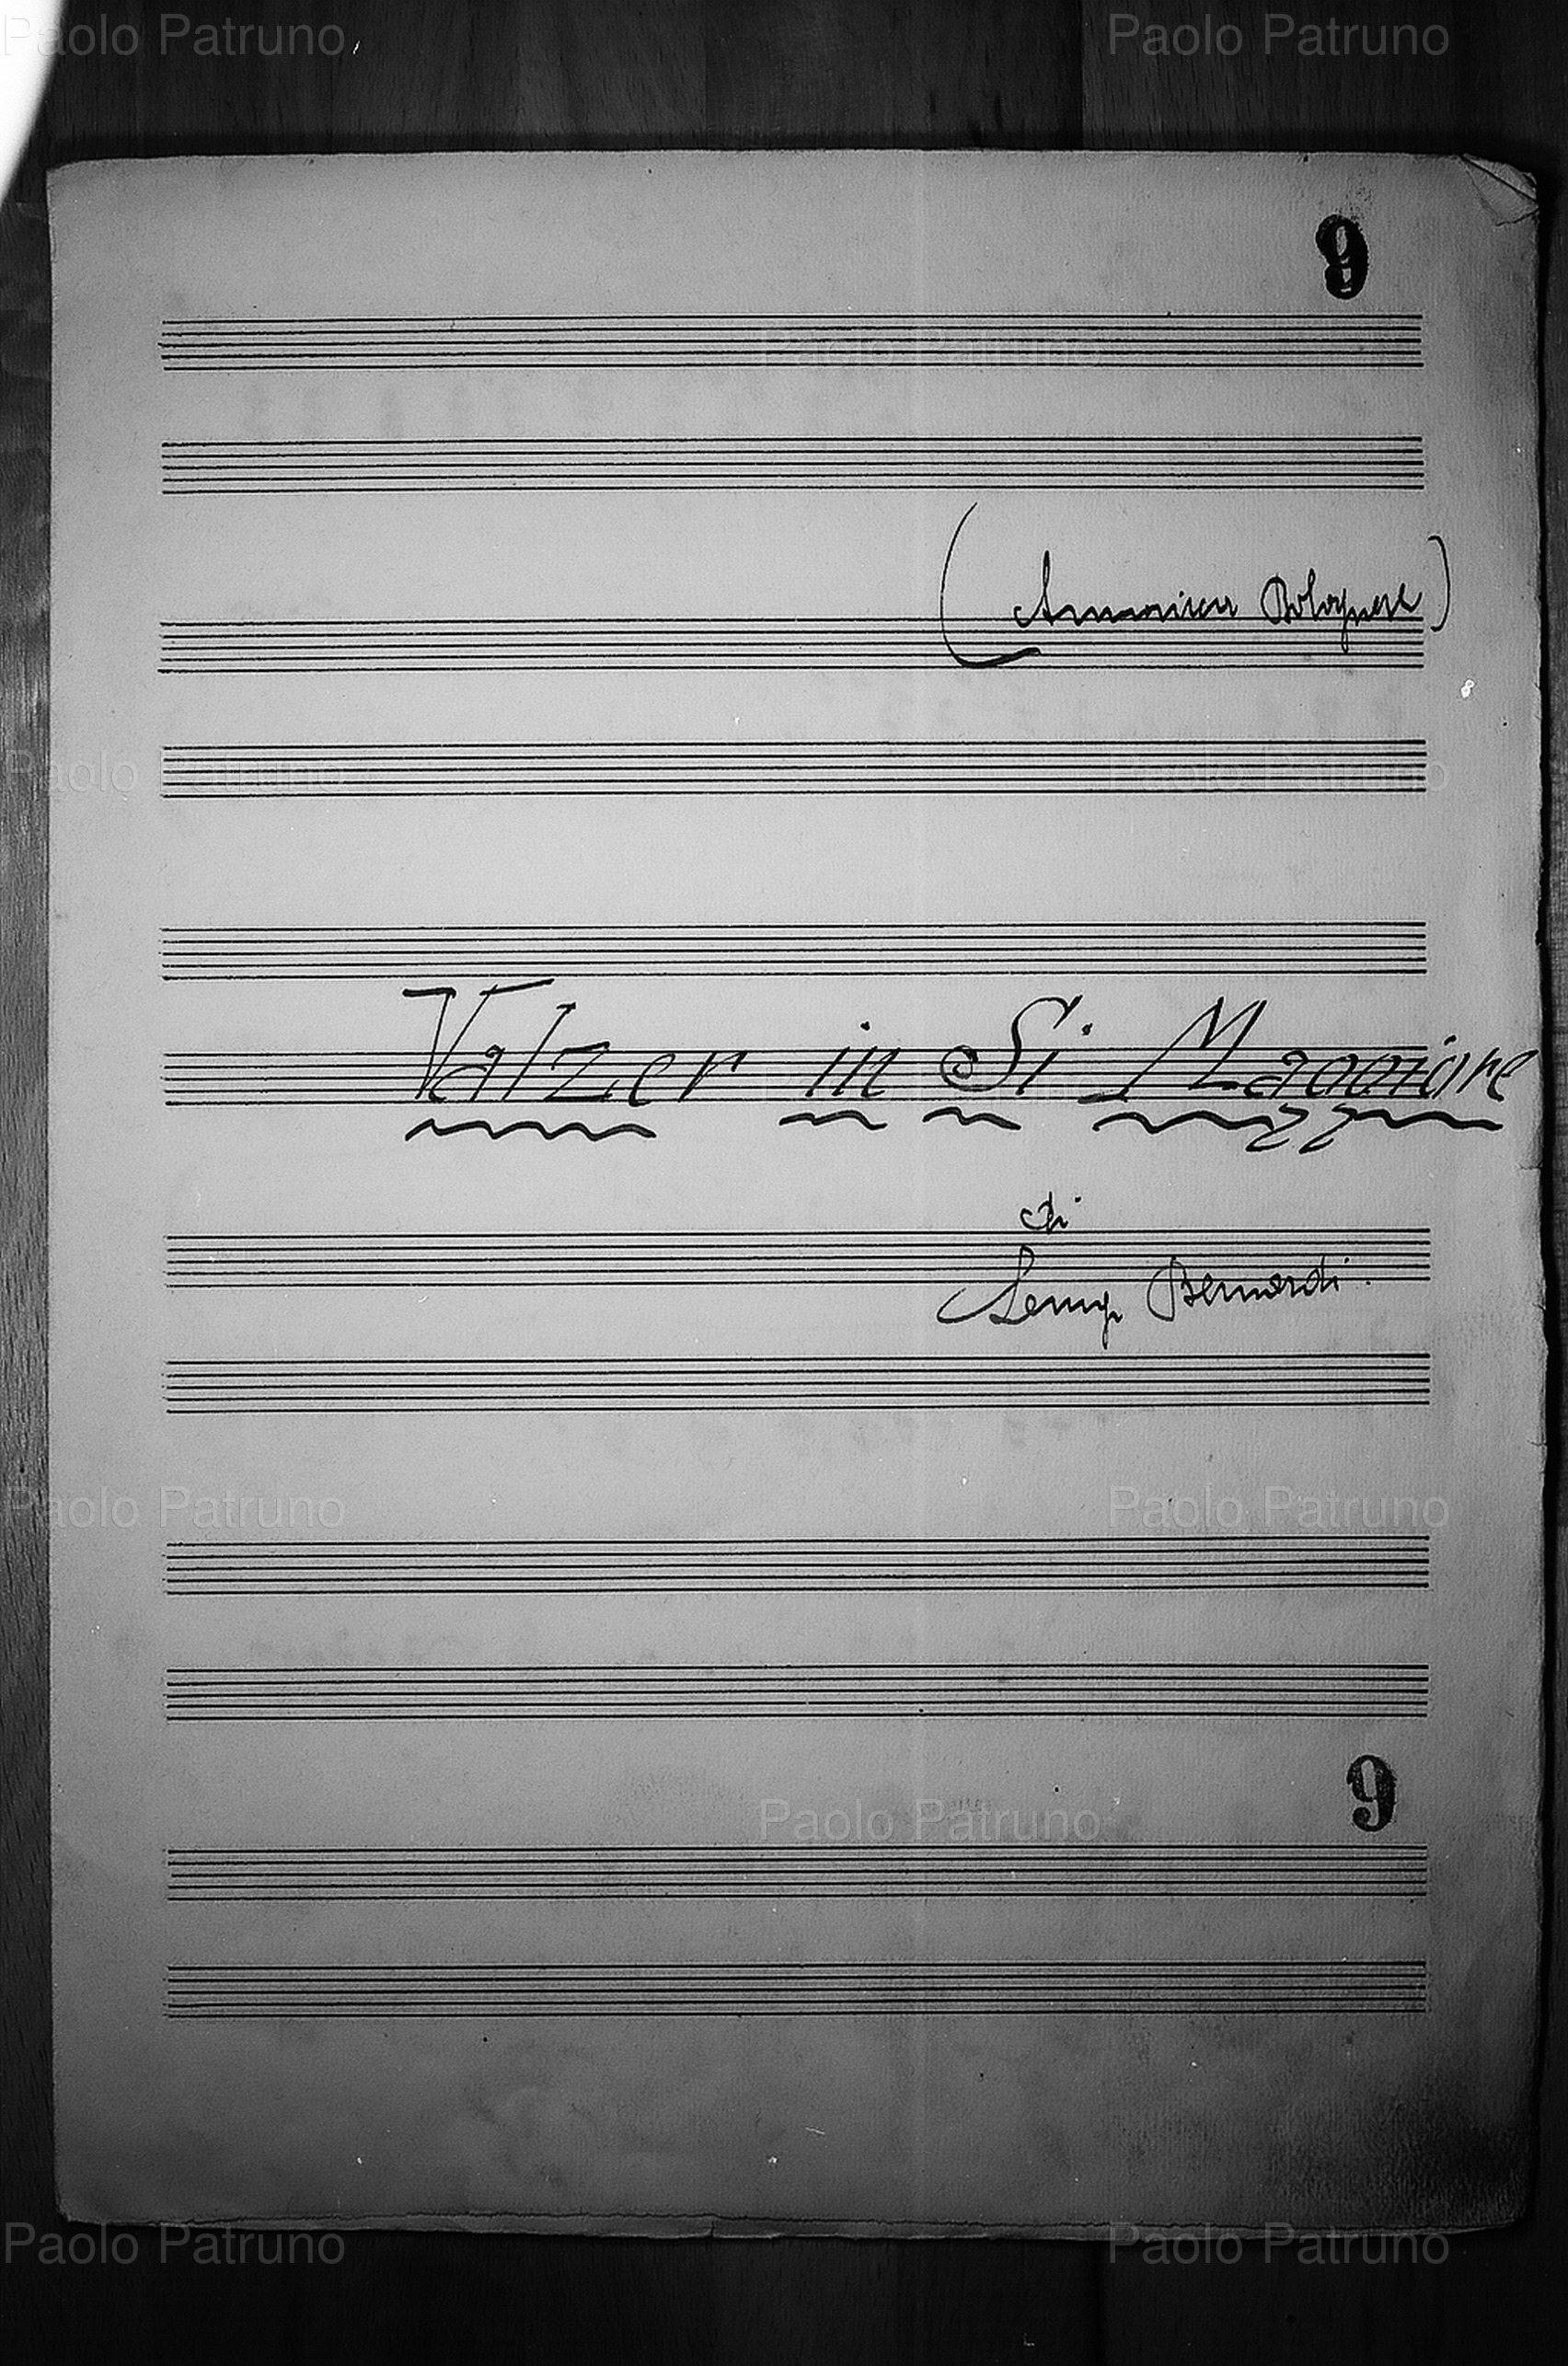 Paolo Patruno Paolo Patruno
9
Paolo Patruno
(Armonica Bolognese)
Paolo Patruno Paolo Patruno
Valzer in Si Maggiore
Paolo Patruno
di
Bernardi.
Paolo Patruno Paolo Patruno
9
Paolo Patruno
Paolo Patruno Paolo Patruno